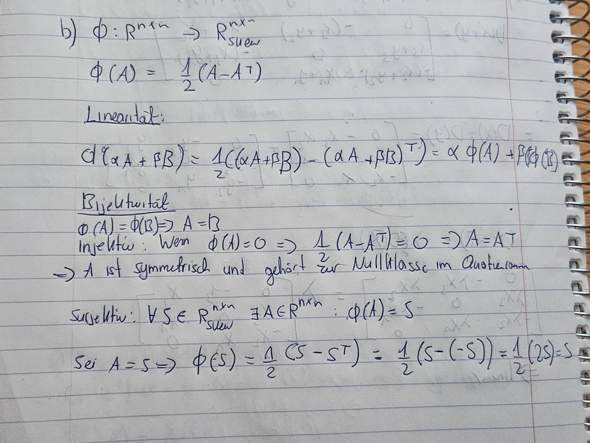 b) ϕ : R^{n×n} → R^{n×n}_{skew}
ϕ(A) = 1/2 (A - A^T)
Linearität:
ϕ(αA + βB) = 1/2 ((αA+βB) - (αA+βB)^T) = α ϕ(A) + βϕ(B)
Bijektivität
ϕ(A) = ϕ(B) => A = B
Injektiv: Wenn ϕ(A) = 0 => 1/2 (A - A^T) = 0 => A = A^T
=> A ist symmetrisch und gehört zur Nullklasse im Quotienraum
Surjektiv: ∀ S ∈ R^{n×n}_{skew} ∃ A ∈ R^{n×n} : ϕ(A) = S
Sei A = S => ϕ(S) = 1/2 (S - S^T) = 1/2 (S - (-S)) = 1/2 (2S) = S